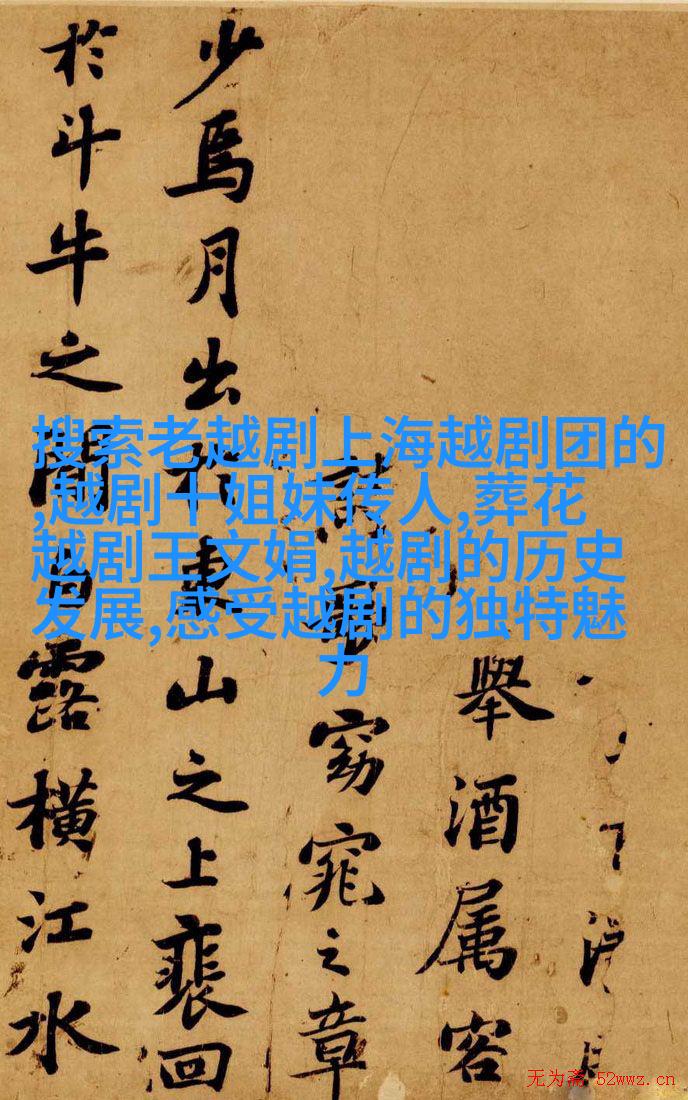 搜索老越剧上海越剧团的
,越剧十姐妹传人,葬花
越剧王文娟,越剧的历史
发展,感受越剧的独特魅
力
舉酒属客
詩歌窈窕之章
少焉月出於東山之上裴回
於斗牛之間白露橫江水
无为斋 52wwz.cn